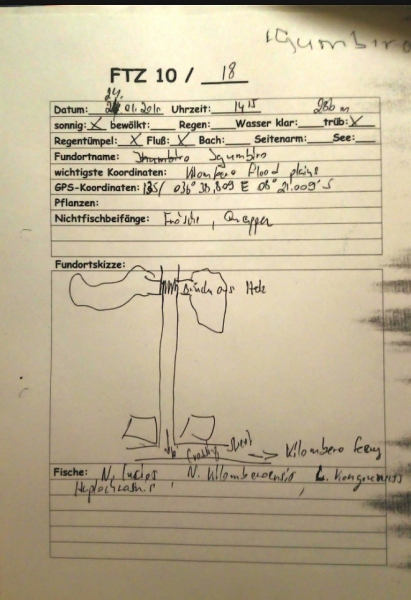 Igumbiro
FTZ 10 / 18
24.
Datum: 01.2010 Uhrzeit: 14 15 286 m
sonnig: X bewölkt: Regen: Wasser klar: trüb: X
Regentümpel: X Fluß: X Bach: Seitenarm: See:
Fundortname: Igumbiro
wichtigste Koordinaten: Kilombero flood plains
GPS-Koordinaten: 135/ 036° 30,809 E 08° 21.009' S
Pflanzen:
Nichtfischbeifänge: Frösche,
Fundortskizze:
Brücke aus Holz
Kilombero Ferry
Fische: N. N. kilomberoensis